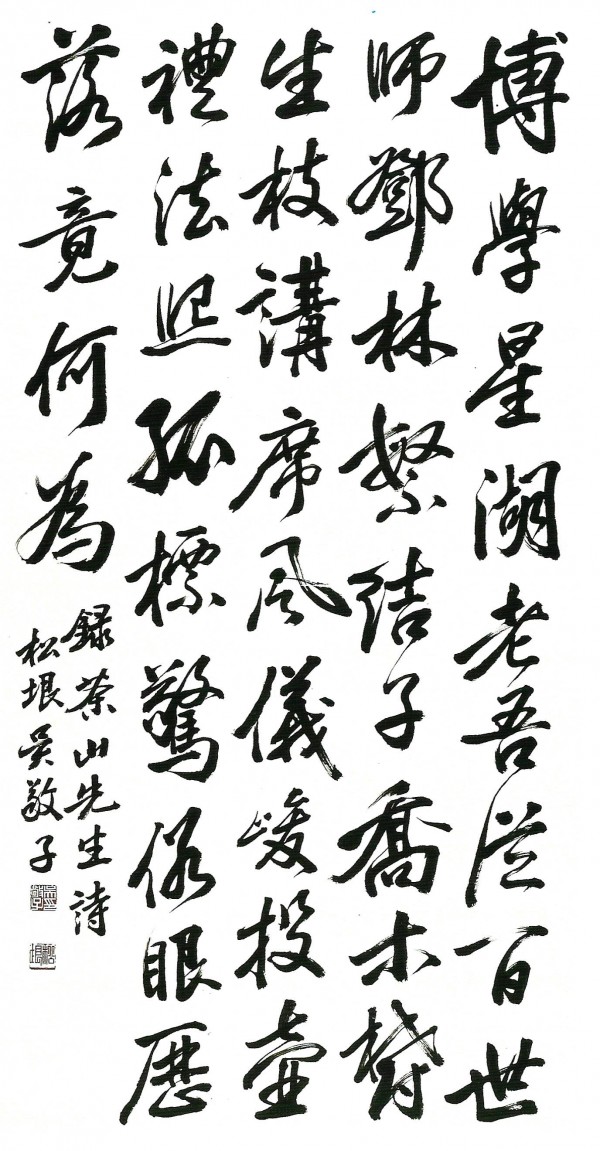 博學星湖老吾從百世
師鄧林繁結子喬木鬱
生枝講席風儀峻投壺
禮法熙孤標驚俗眼歷
落竟何為
錄茶山先生詩
松垠吳敬子